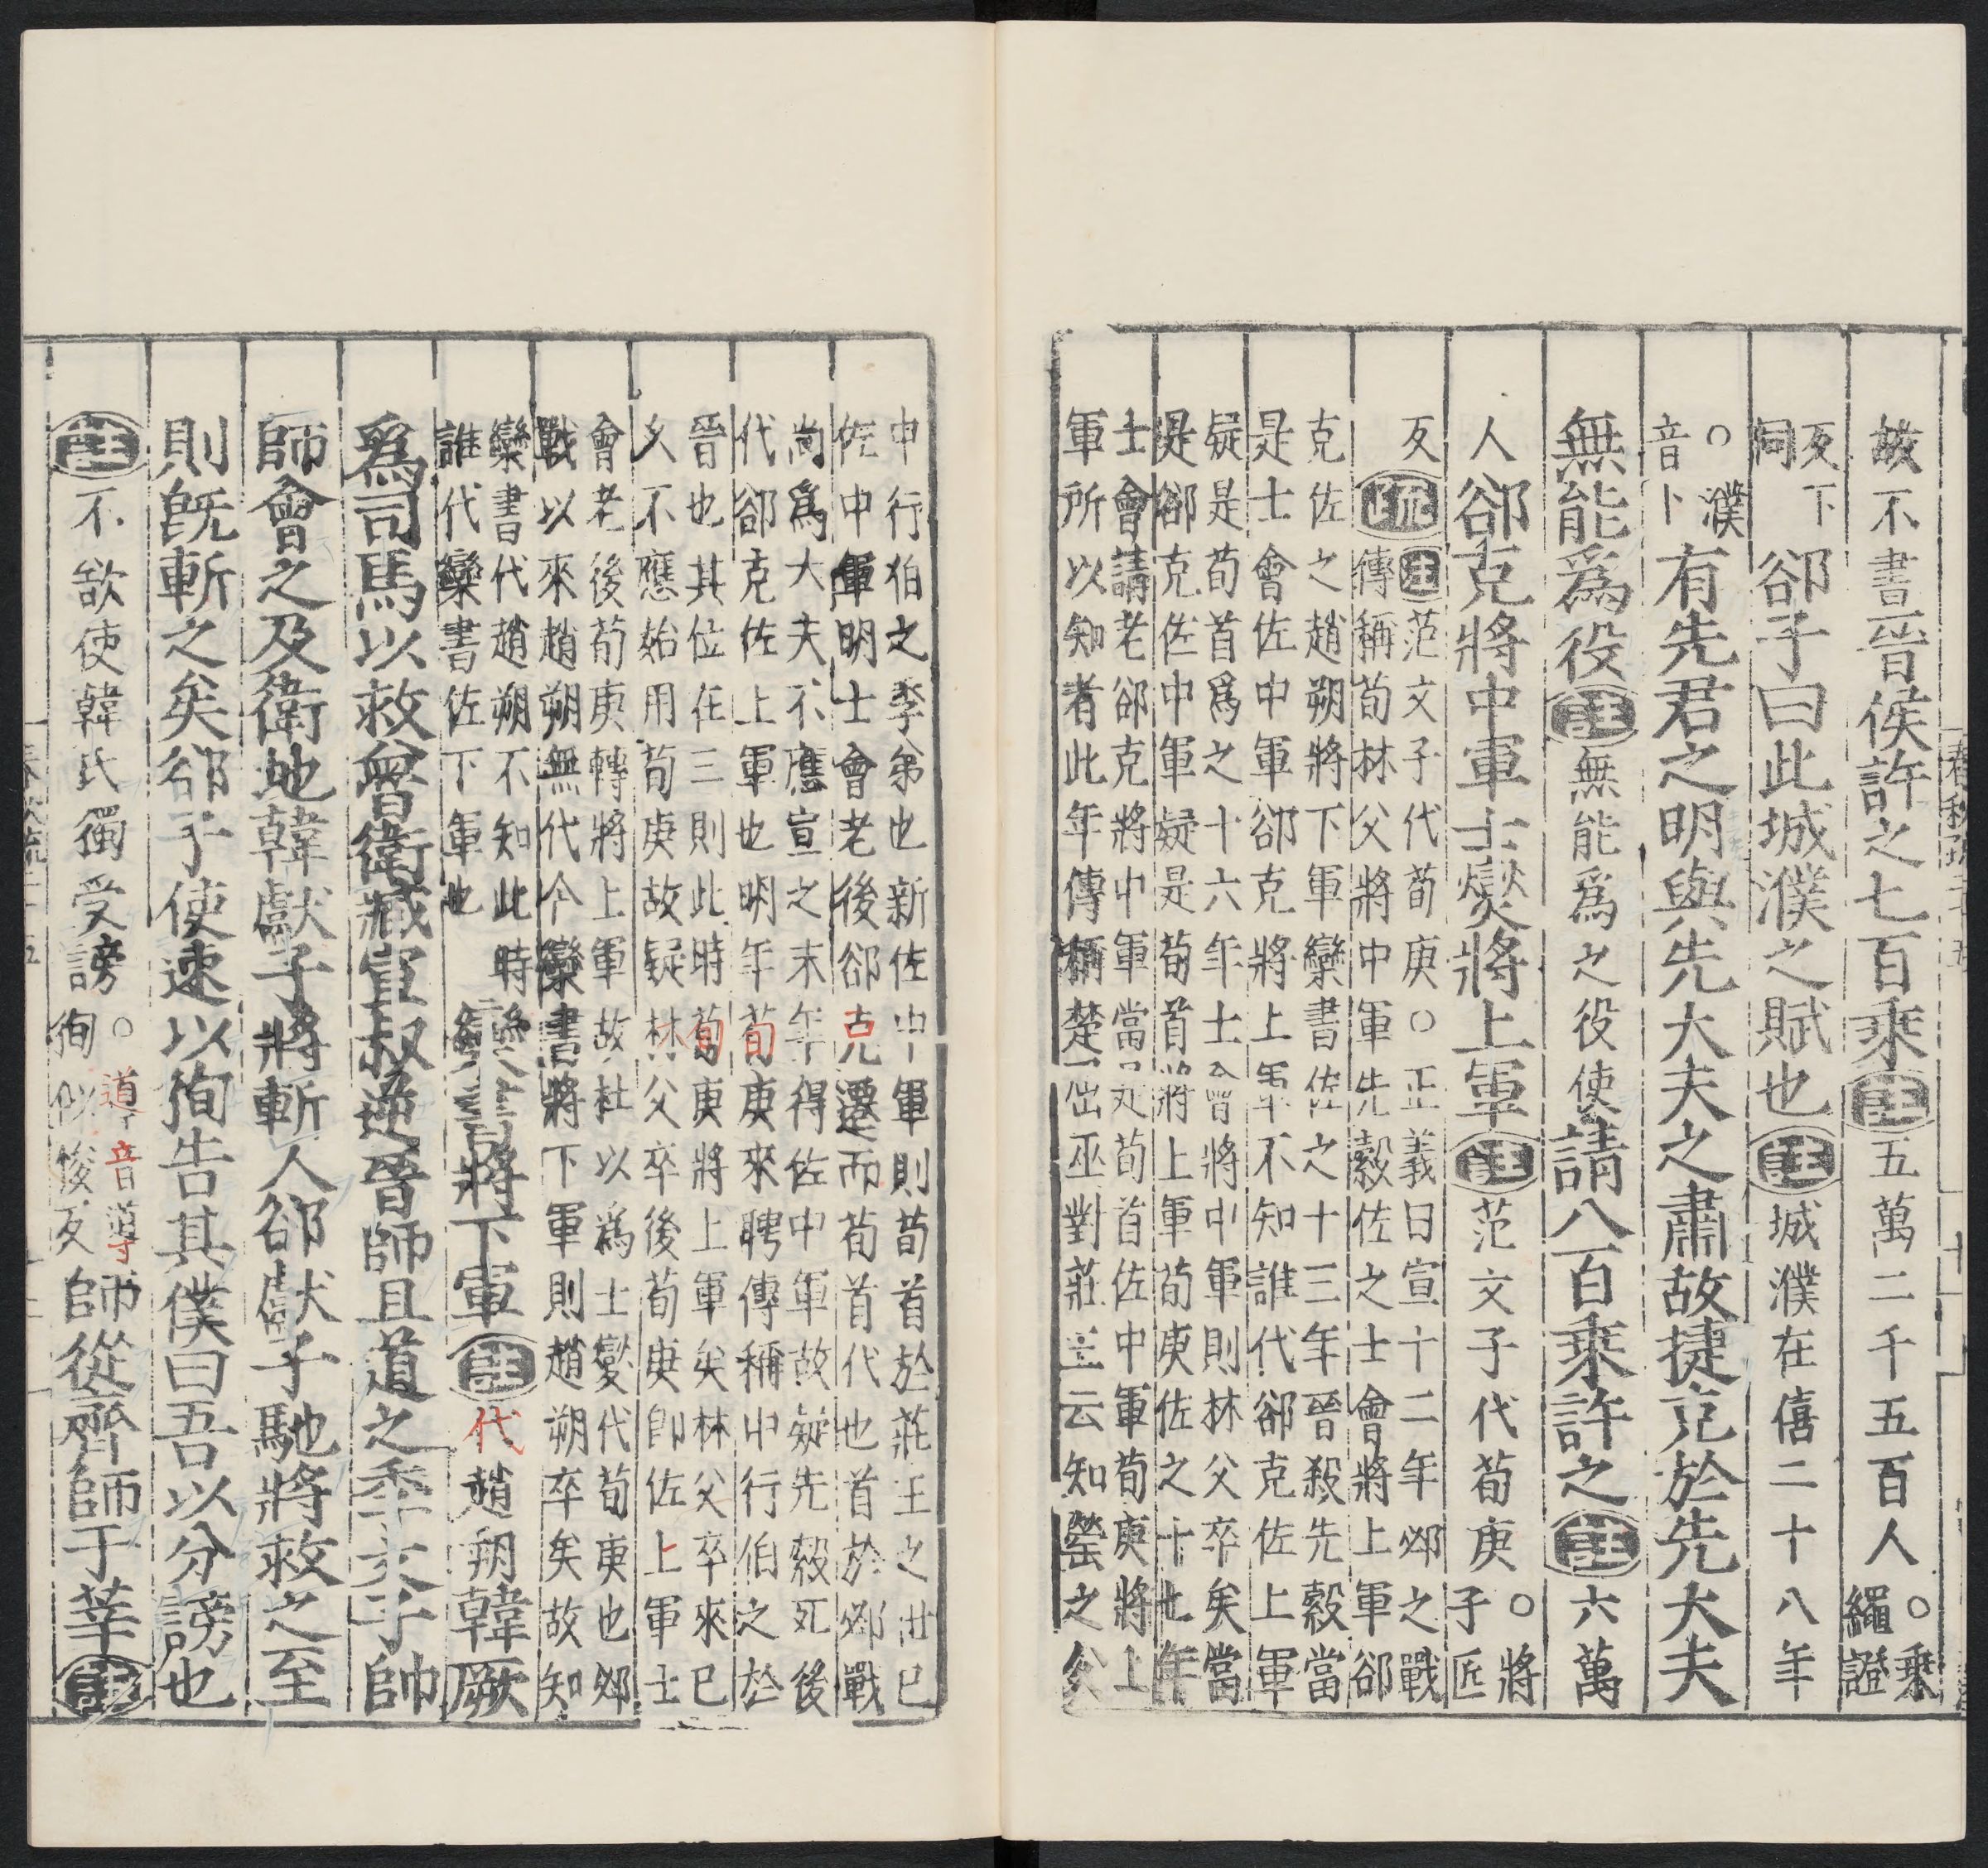 故不書晉侯許之七百乘註五萬二千五百人○乘繩證
反下同郤子曰此城濮之賦也註城濮在僖二十八年
○濮音卜有先君之明與先大夫之肅故捷克於先大夫
無能爲役註無能爲之役使請八百乘許之註六萬
人郤克將中軍士燮將上軍註范文子代荀庚○將子匠
反疏註范文子代荀庚○正義曰宣十二年邲之戰
傳稱荀林父將中軍先縠佐之士會將上軍郤
克佐之趙朔將下軍欒書佐之十三年晉殺先縠當
是士會佐中軍郤克將上軍不知誰代郤克佐上軍
疑是荀首爲之十六年士會將中軍則林父卒矣當
是郤克佐中軍疑是荀首將上軍荀庚佐之十七年
士會請老郤克將中軍當是荀首佐中軍荀庚將上
軍所以知者此年傳稱楚屈巫對莊王云知罃之父
中行伯之季弟也新佐中軍則荀首於莊王之世已
佐中軍明士會老後郤克遷而荀首代也首於邲戰
尚爲大夫不應宣之末年得佐中軍故疑先縠死後
代郤克佐上軍也明年荀庚來聘傳稱中行伯之於
晉也其位在三則此時荀庚將上軍矣林父卒來已
久不應始用荀庚故疑林父卒後荀庚即佐上軍士
會老後荀庚轉將上軍故杜以爲士燮代荀庚也邲
戰以來趙朔無代今欒書將下軍則趙朔卒矣故知
欒書代趙朔不知此時
誰代欒書佐下軍也
欒書將下軍註代趙朔韓厥
爲司馬以救魯衛臧宣叔逆晉師且道之季文子帥
師會之及衛地韓獻子將斬人郤獻子馳將救之至
則既斬之矣郤子使速以徇告其僕曰吾以分謗也
註不欲使韓氏獨受謗○道音導徇似俊反師從齊師于莘註